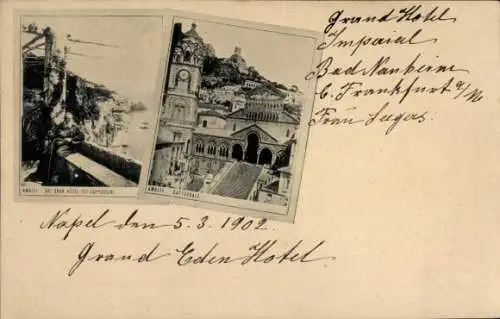 Grand Hotel
Imperial
Bad Nauheim
b. Frankfurt a/M
Frau Seegers.
AMALFI - DAL GRAN HOTEL DEI CAPPUCCINI
AMALFI - CATTEDRALE
Napel den 5.3.1902.
Grand Eden Hotel